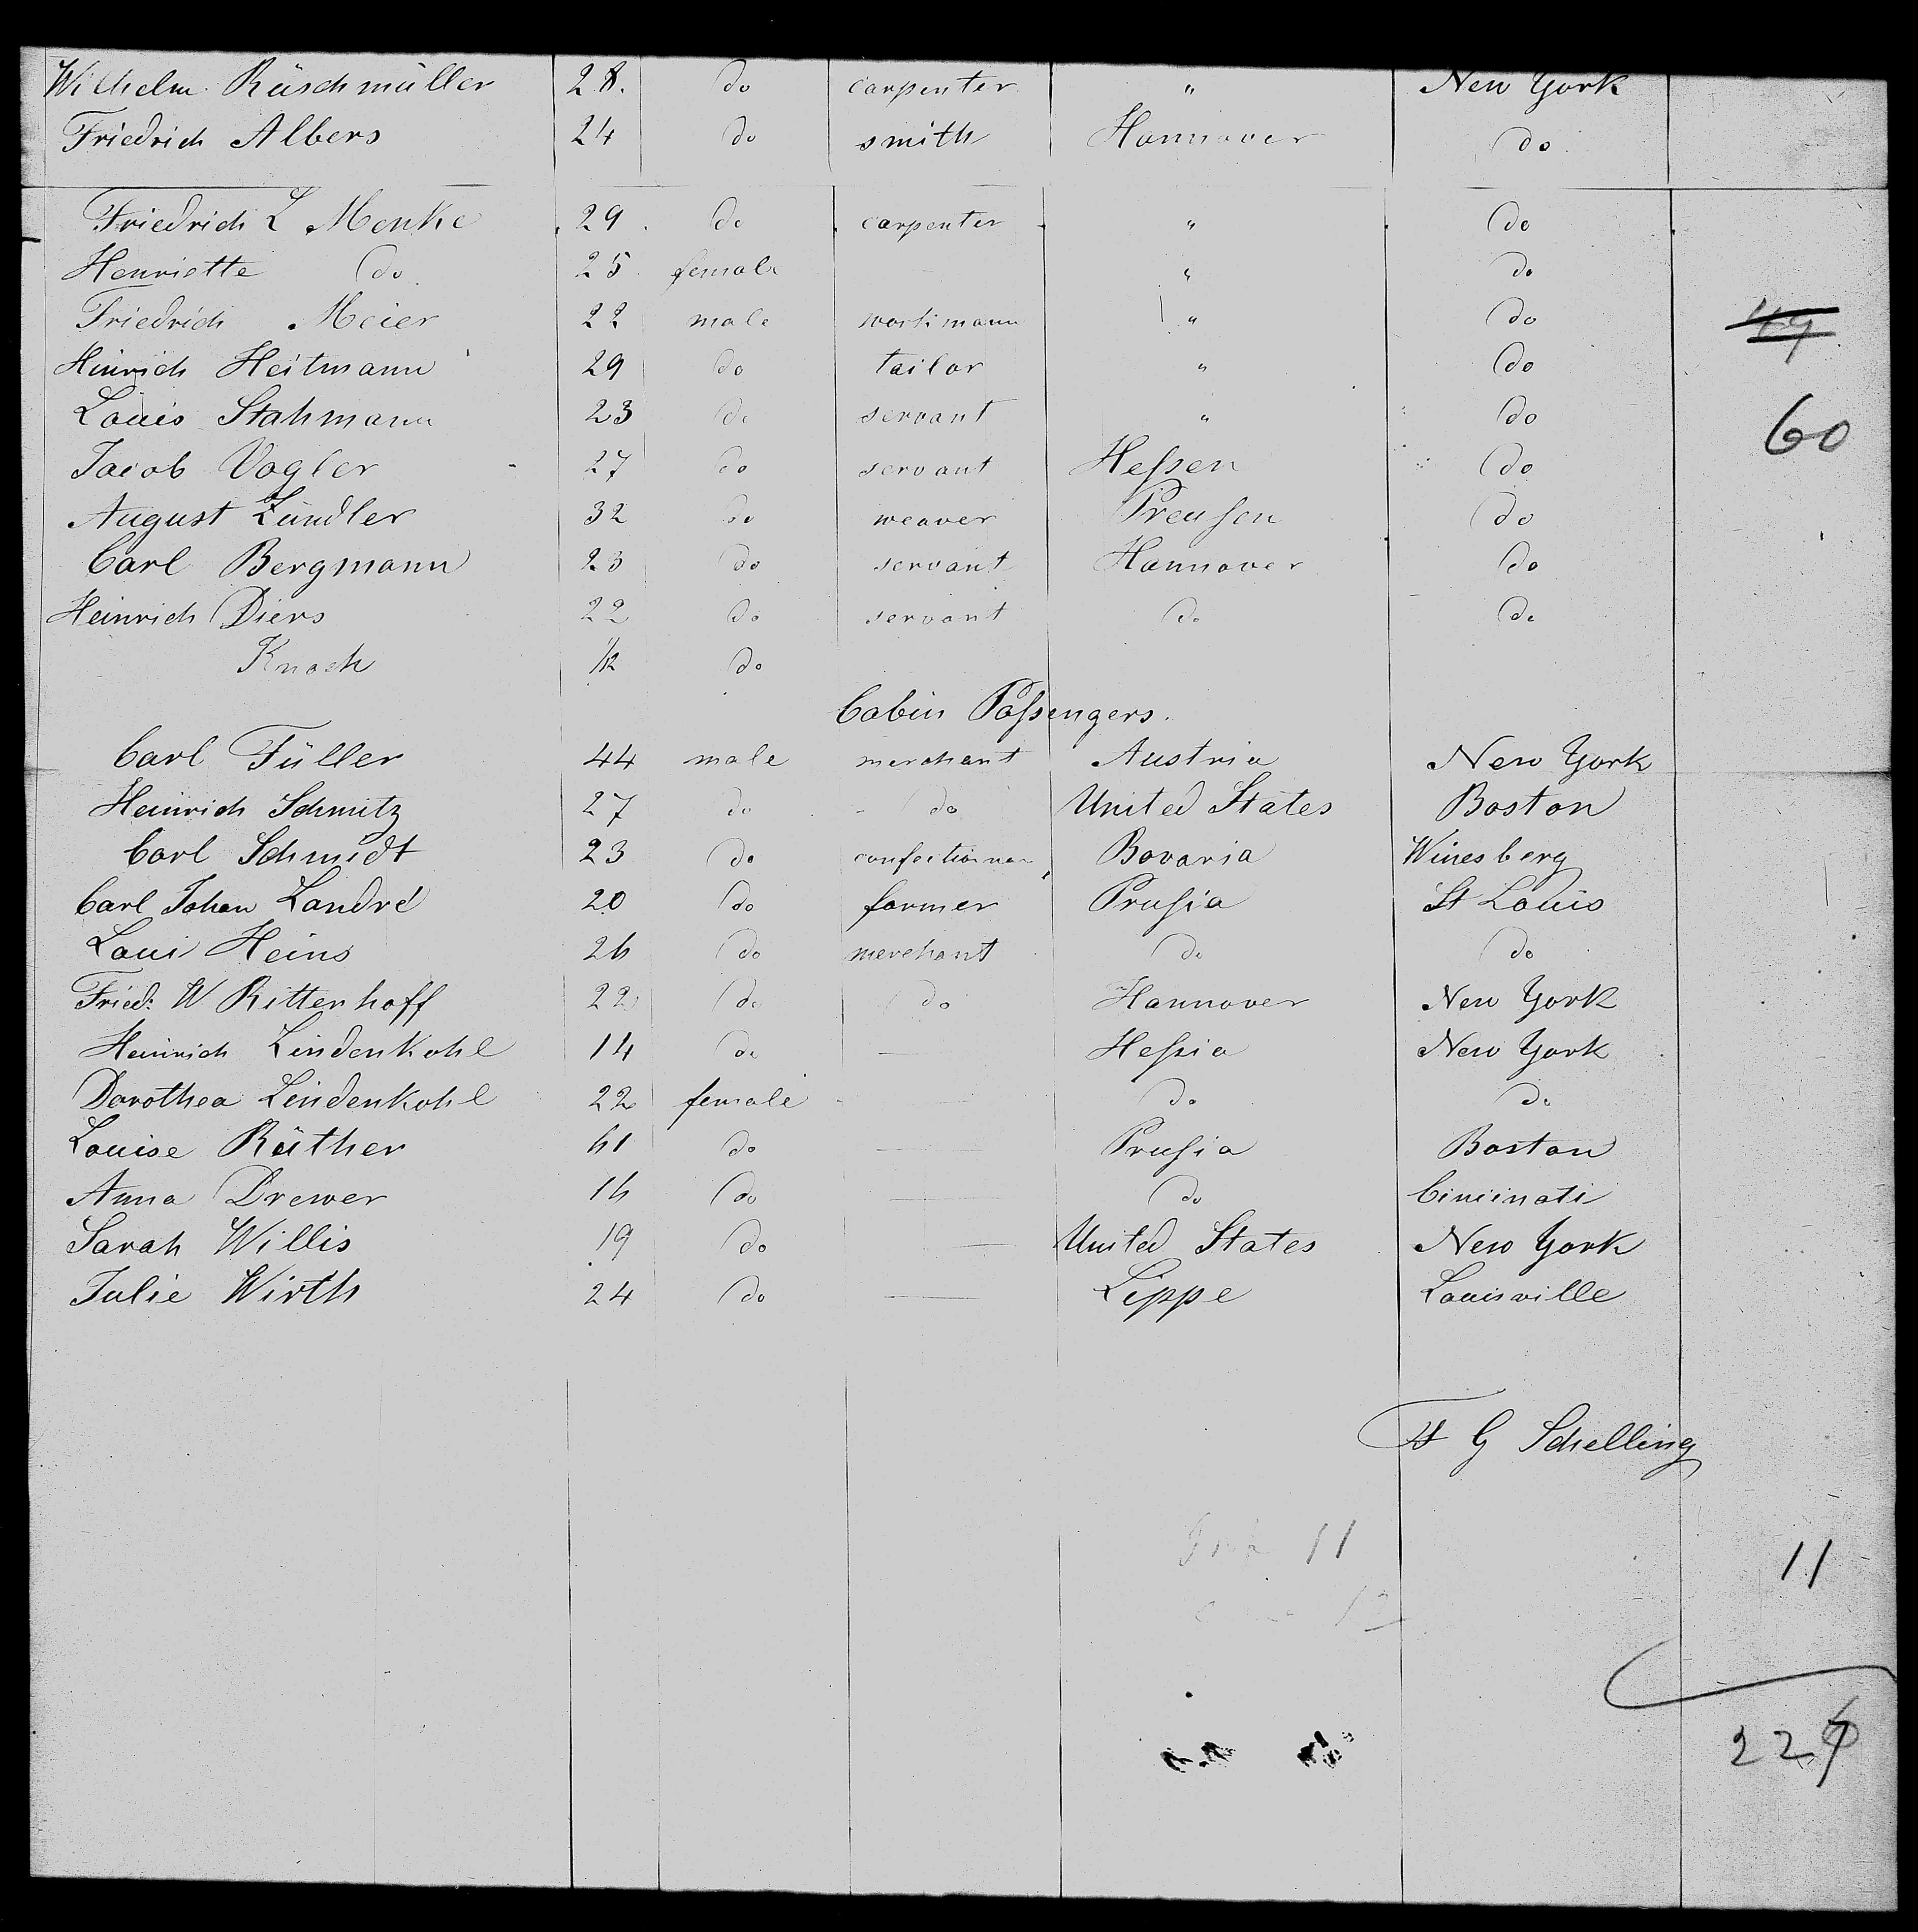 Wilhelm Rüschmüller 28. do carpenter " New York
Friedrich Albers 24 do smith Hannover do
Friedrich L Menke 29 do carpenter " do
Henriette do 25 female " do
Friedrich Meier 22 male workmann " do
49
Hinrich Heitmann 29 do tailor " do
Louis Stahmann 23 do servant " do
60
Jacob Vogler 27 do servant Heſsen do
August Zündler 32 do weaver Preuſsen do
Carl Bergmann 23 do servant Hannover do
Heinrich Diers 22 do servant do do
Knoch do
Cabin Paſsengers.
Carl Füller 44 male merchant Austria New York
Heinrich Schmitz 27 do do United States Boston
Carl Schmidt 23 do confectioner Bavaria Winesberg
Carl Johan Landré 20 do farmer Pruſsia St Louis
Loui Heins 26 do merchant do do
Fried: W Ritterhoff 22 do do Hannover New York
Heinrich Lindenkohl 14 do — Heſsia New York
Dorothea Lindenkohl 22 female — do do
Louise Räther 61 do — Pruſsia Boston
Anna Drewer 16 do — do Cincinati
Sarah Willis 19 do — United States New York
Julie Wirth 24 do — Lippe Louisville
G Schelling
11
11
12